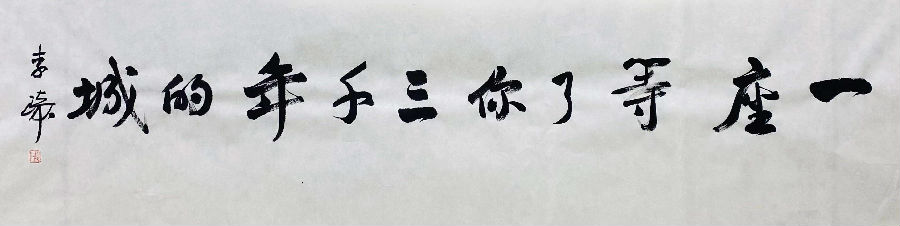 一座等了你三千年的城